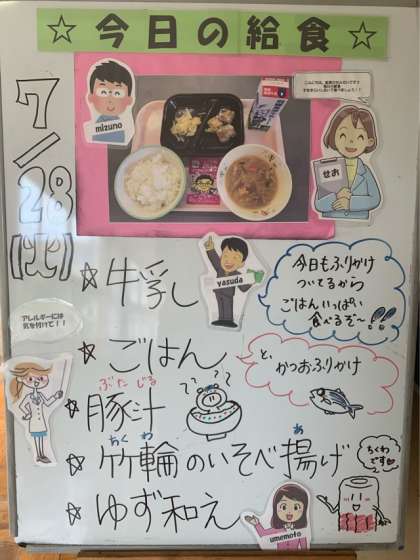 ☆ 今日の給食 ☆
7/28(土)
mizuno
せお
yasuda
☆牛乳
今日もふりかけ
ついてるから
ごはんいっぱい
食べるぞ〜!!
アレルギーには
気を付けて!!
☆ごはん
と、
かつおふりかけ
ぶたじる
☆豚汁
ちくわ あ
☆竹輪のいそべ揚げ
ちくわ
です
☆ゆず和え
umemoto